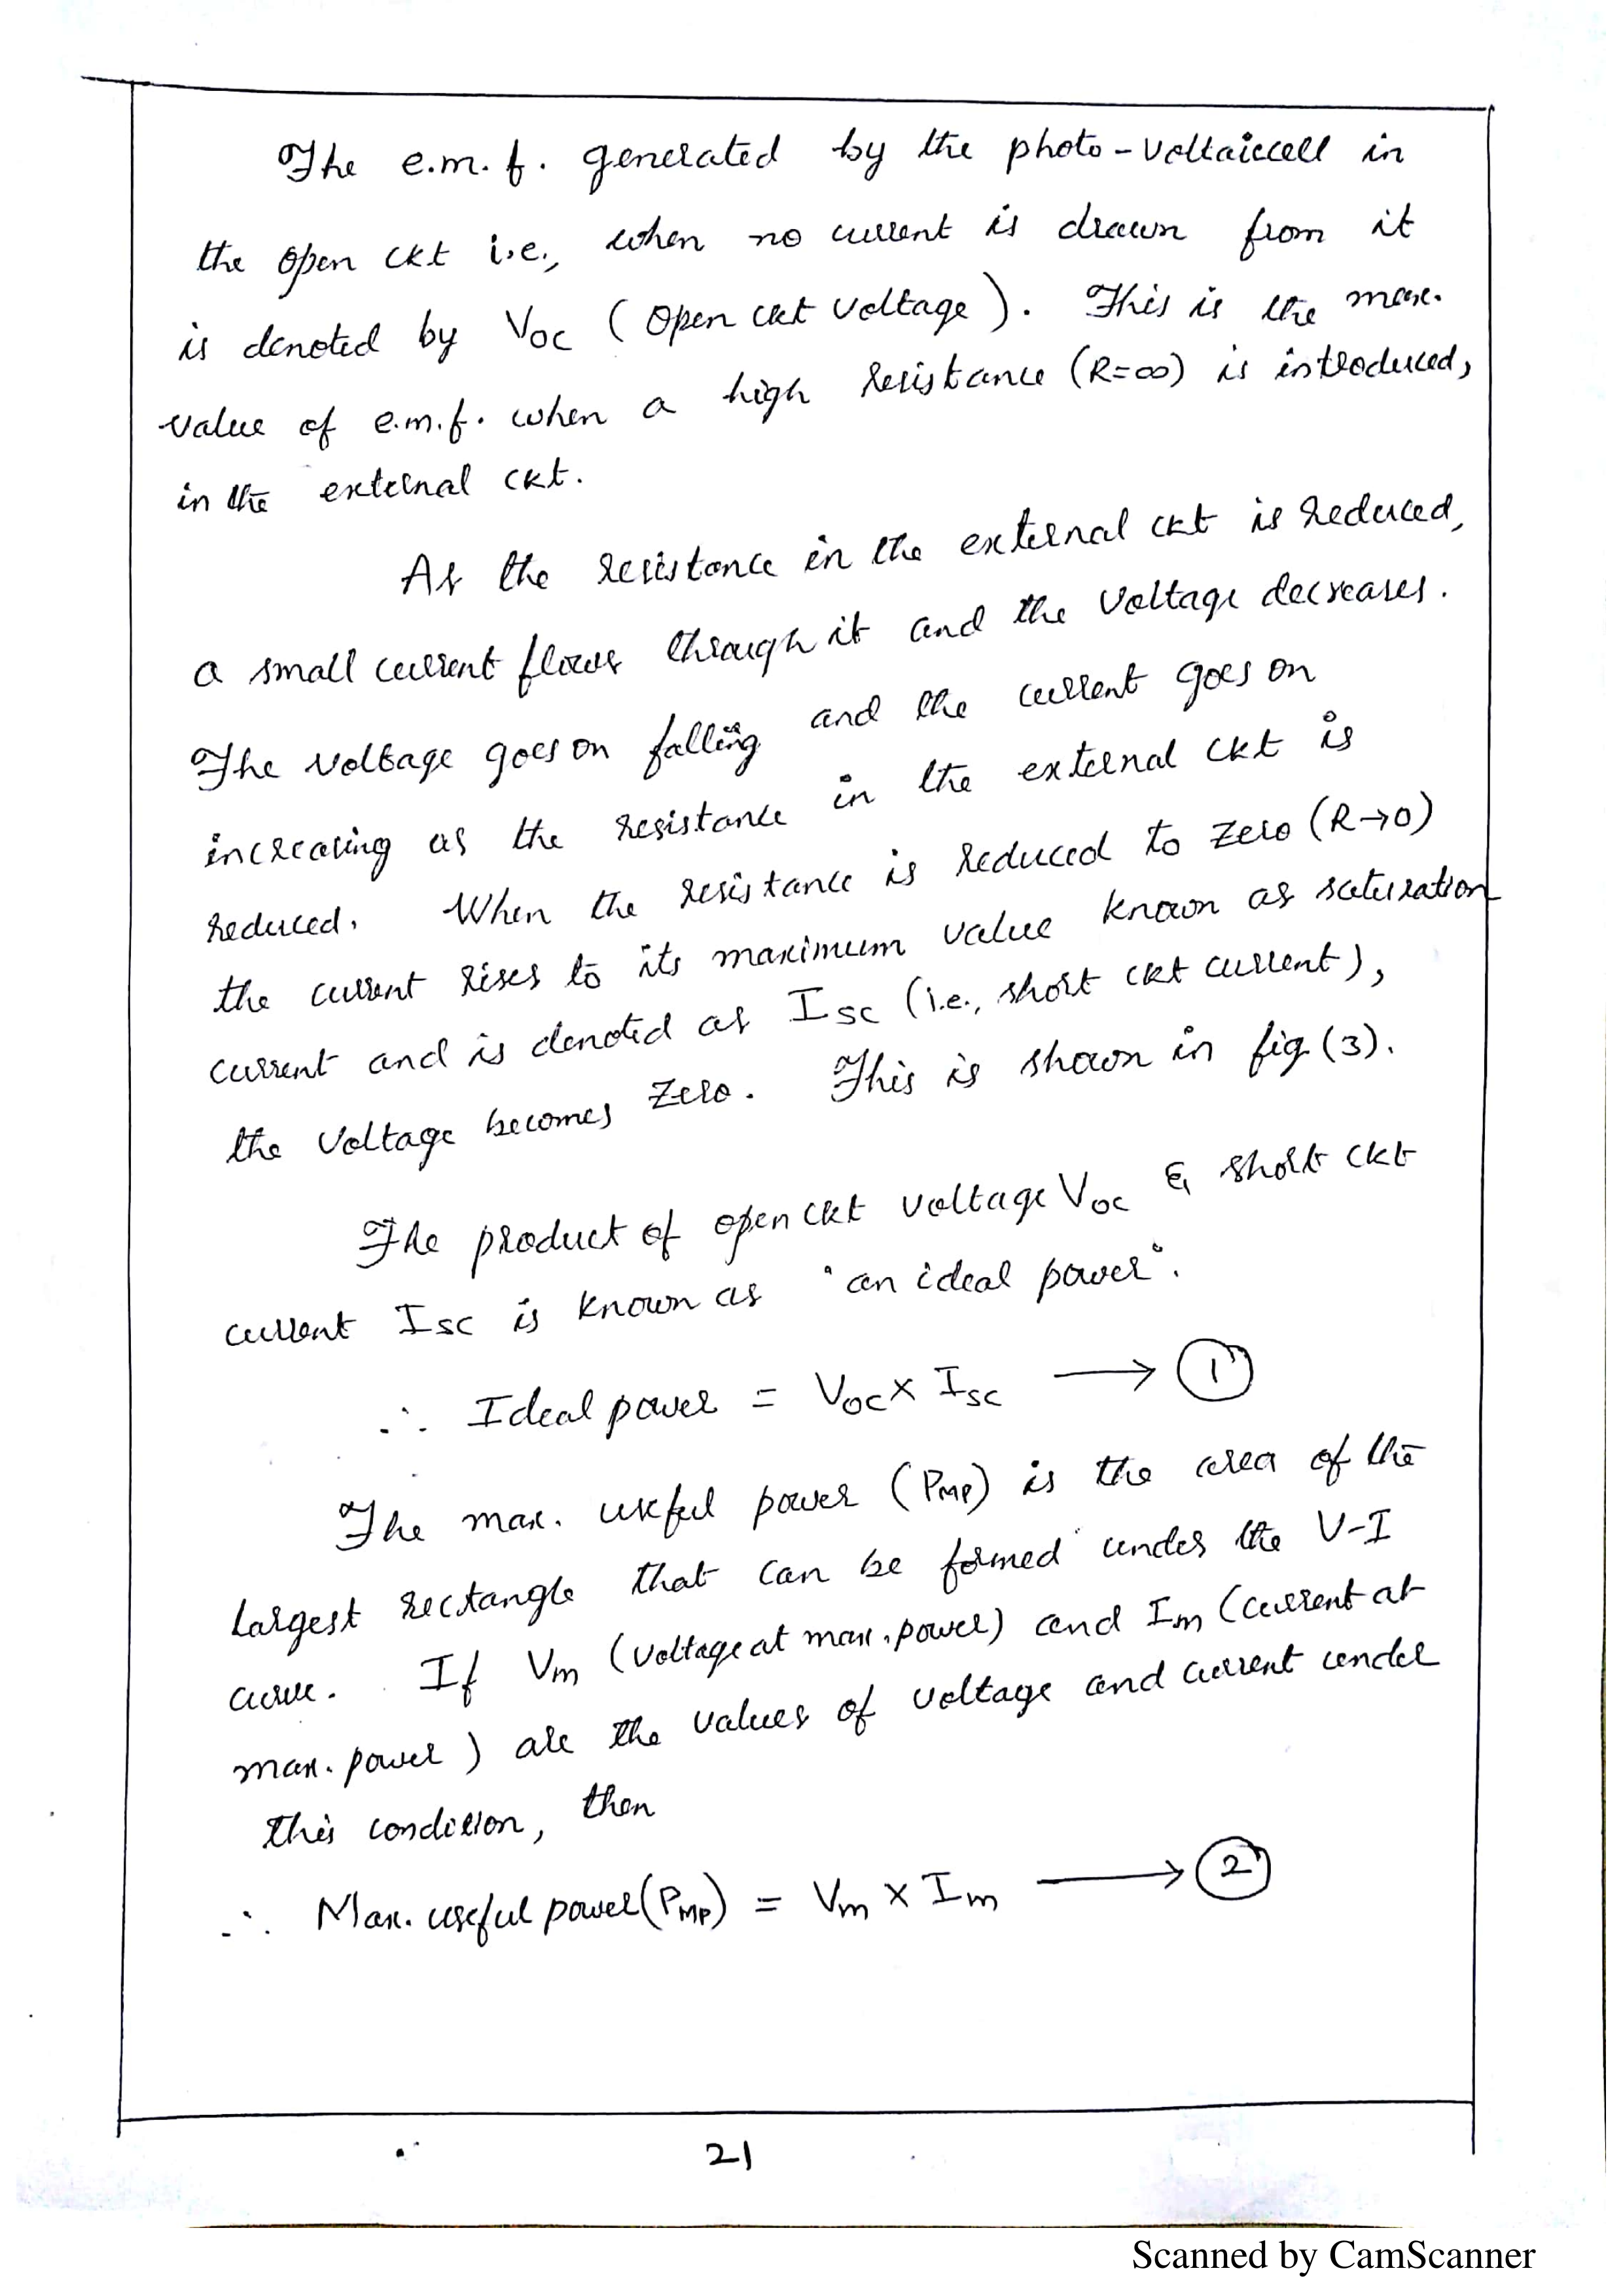 The e.m.f. generated by the photo-voltaiccell in
the open ckt i.e., when no current is drawn from it
is denoted by Voc (Open ckt voltage). This is the max.
value of e.m.f. when a high resistance (R=∞) is introduced,
in the external ckt.
As the resistance in the external ckt is reduced,
a small current flows through it and the voltage decreases.
The voltage goes on falling and the current goes on
increasing as the resistance in the external ckt is
reduced. When the resistance is reduced to zero (R→0)
the current rises to its maximum value known as saturation
current and is denoted as Isc (i.e., short ckt current),
the voltage becomes zero. This is shown in fig (3).
The product of open ckt voltage Voc & short ckt
current Isc is known as "an ideal power".
∴ Ideal power = Voc x Isc ⟶ 1
The max. useful power (PMP) is the area of the
largest rectangle that can be formed under the V-I
curve. If Vm (voltage at max. power) and Im (current at
max. power) are the values of voltage and current under
this condition, then
∴ Max. useful power (PMP) = Vm x Im ⟶ 2
21
Scanned by CamScanner